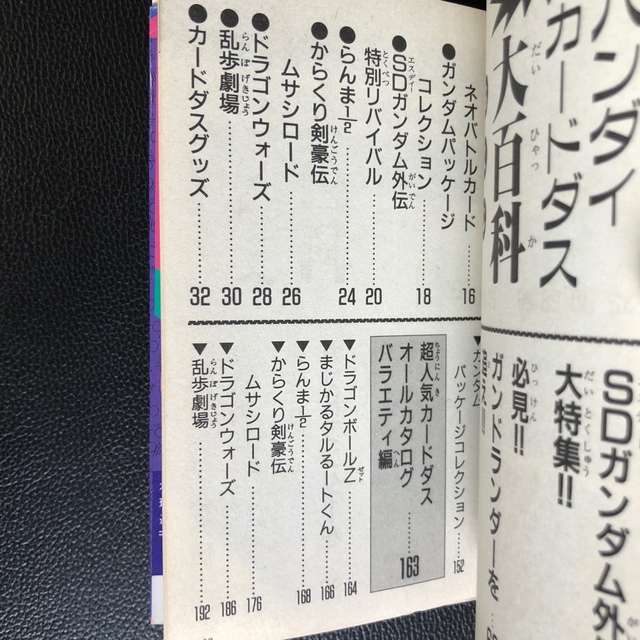 バンダイ
カードダス
大百科
SDガンダム外
大特集!!
必見!!
ガンドランダーを
ネオバトルカード……16
ガンダムパッケージ
コレクション……18
●SDガンダム外伝
特別リバイバル……20
●らんま1/2……24
●からくり剣豪伝
ムサシロード……26
●ドラゴンウォーズ……28
●乱歩劇場……30
●カードダスグッズ……32
パッケージコレクション……152
超人気カードダス
オールカタログ
バラエティ編 163
▼ドラゴンボールZ……164
▼まじかるタルるートくん……166
▼らんま1/2……168
▼からくり剣豪伝
ムサシロード……176
▼ドラゴンウォーズ……186
▼乱歩劇場……192